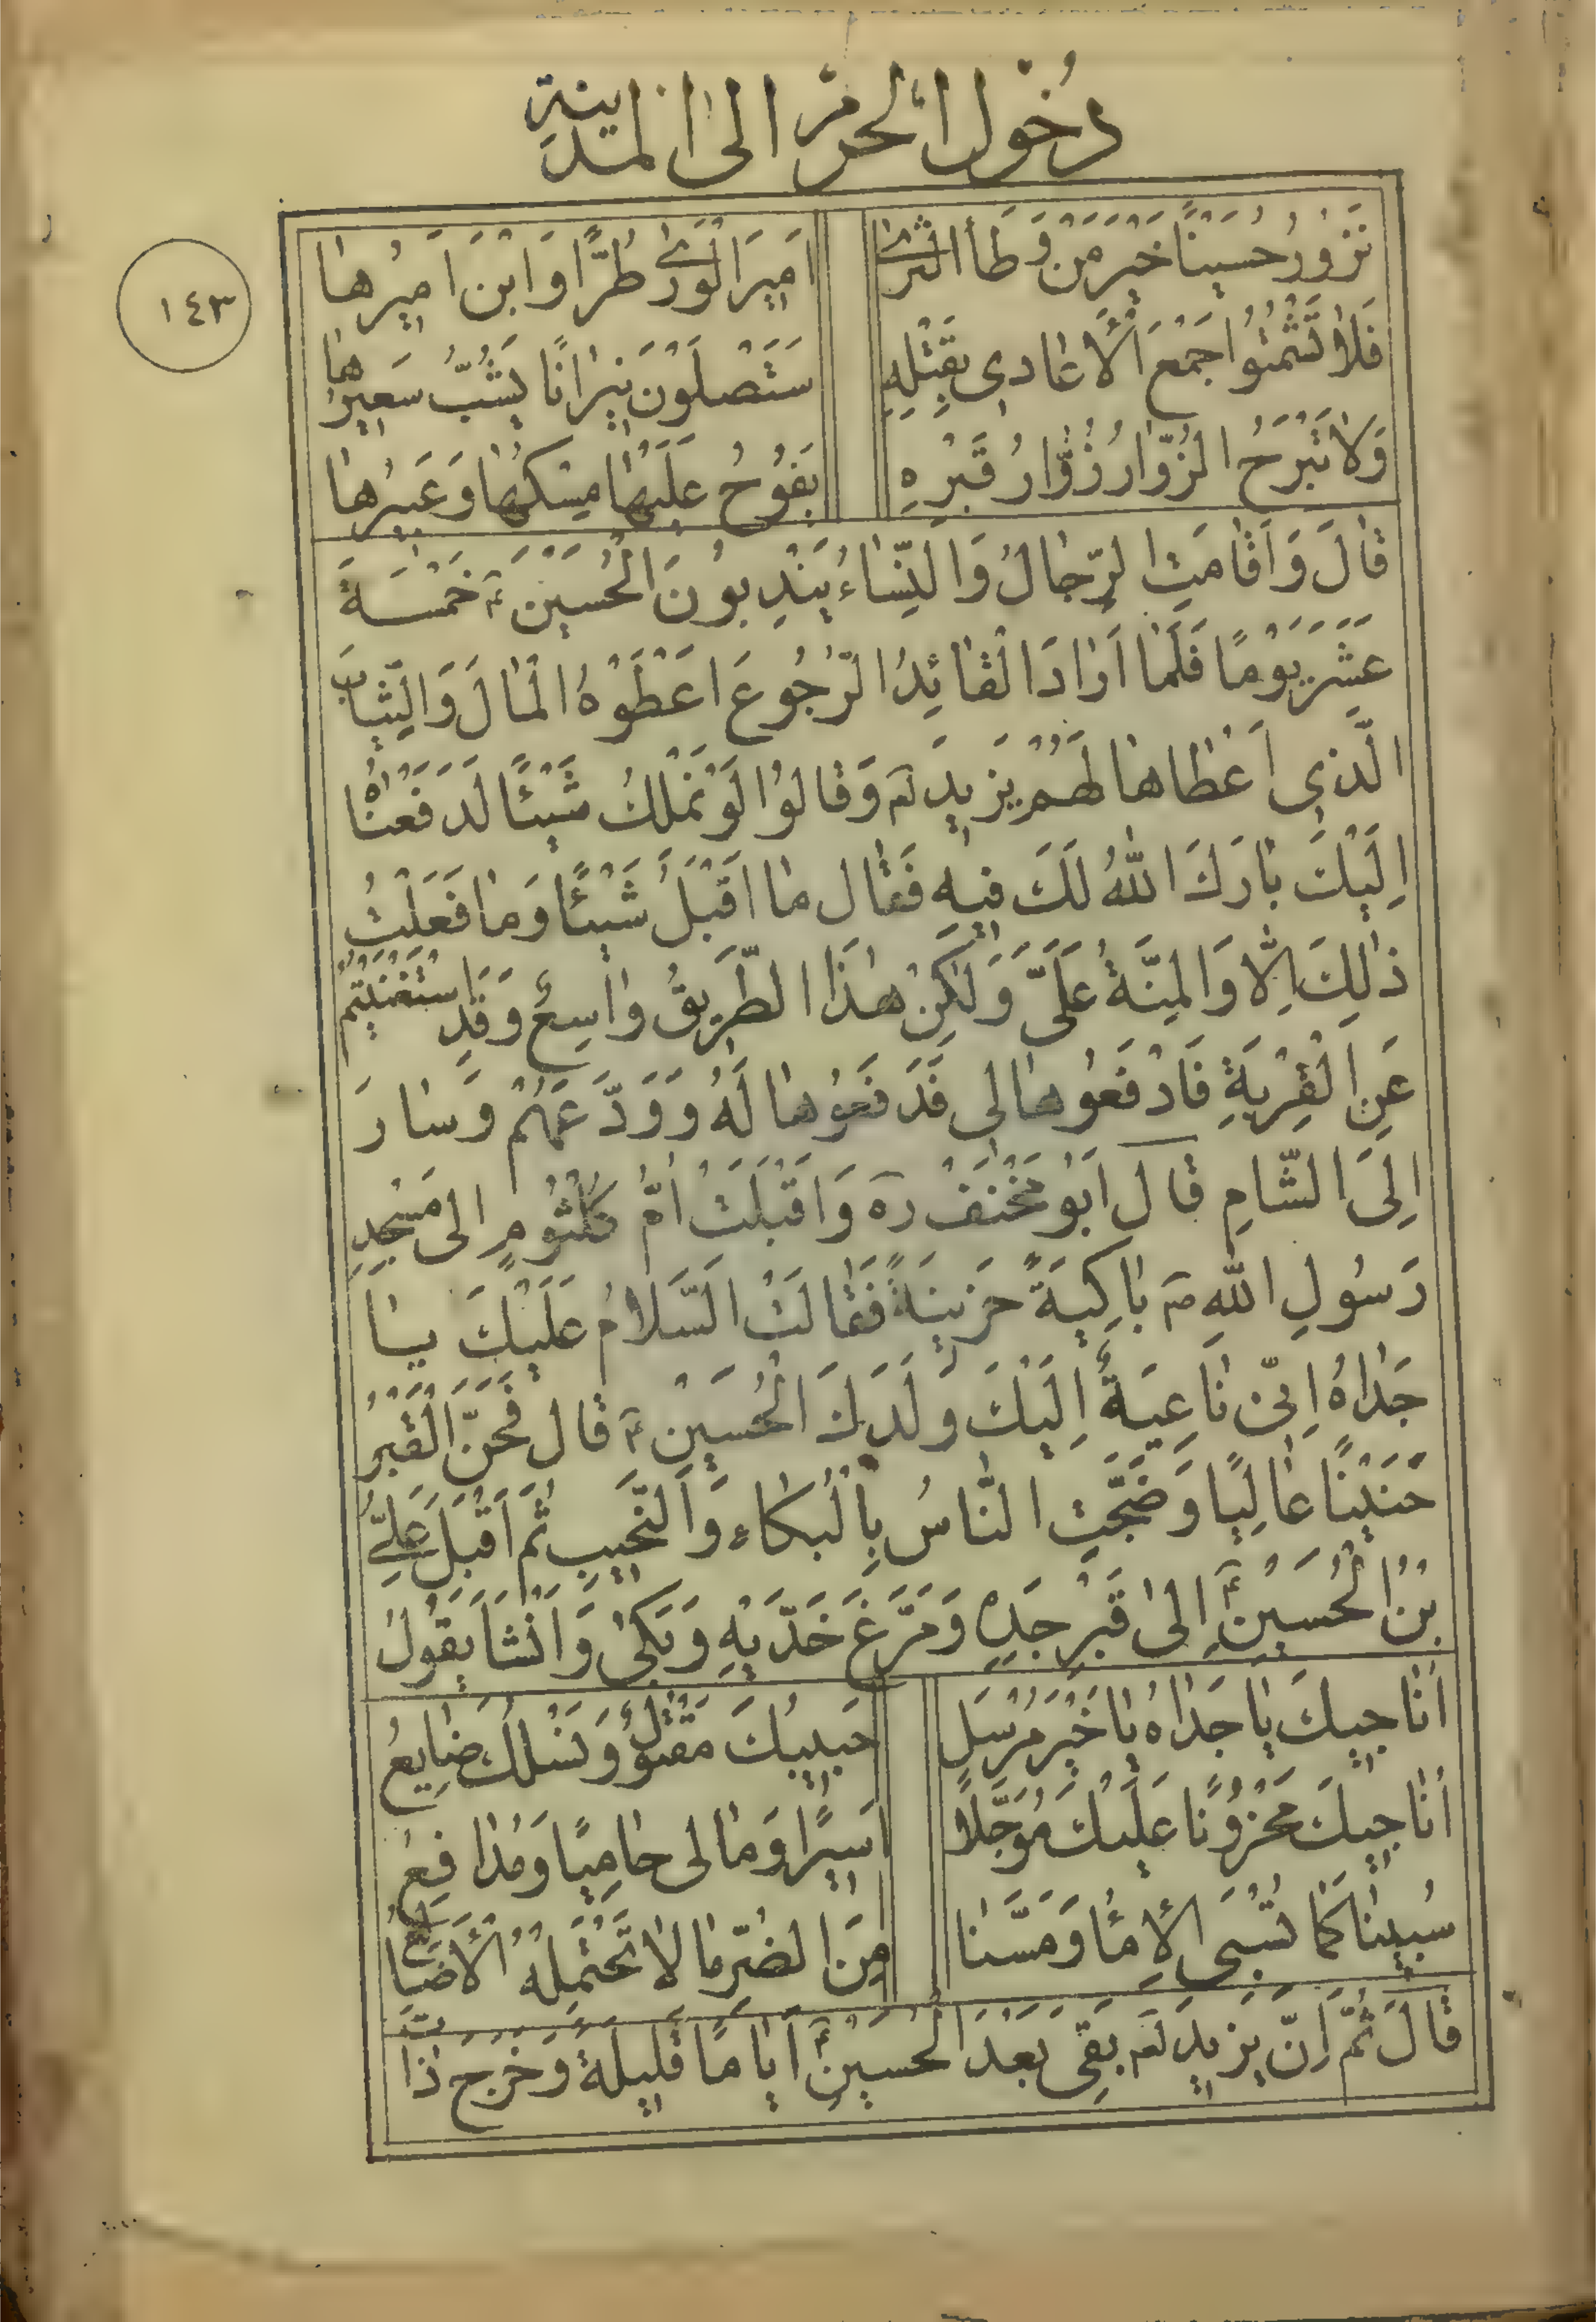 دُخُول الحرم الى المدينة
١٤٣
نَزُورُ حُسَيْنًا خَيْرَ مَنْ وَطَأ الثَّرى اَمِيرَ الْوَرى طُرًّا وَابْنَ اَمِيرُها
فَلا تَشْمَتُوا جَمْعَ الْأَعادِى بِقَتْلِهِ سَتَصْلَوْنَ نِيرانًا يَشُبُّ سَعِيرُها
وَلا تَبْرَحُ الزُّوّارُ زُوّارُ قَبْرِهِ يَفُوحُ عَلَيْها مِسْكُها وَعَبِيرُها
قالَ وَاَقامَتِ الرِّجالُ وَالنِّساءُ يَنْدِبُونَ الْحُسَيْنَ ع خَمْسَةَ
عَشَرَ يَوْمًا فَلَمّا اَرادَ الْقائِدُ الرُّجُوعَ اَعْطَوْهُ الْمالَ وَالثِّيابَ
الَّذِى اَعْطاها لَهُمْ يَزِيد لع وَقالُوا لَوْ نَمْلِكُ شَيْئًا لَدَفَعْناهُ
اِلَيْكَ بارَكَ اللهُ لَكَ فِيهِ فَقال ما اَقْبَلُ شَيْئًا وَما فَعَلْتُ
ذلِكَ اِلّا وَالْمِنَّةُ عَلَىَّ وَلكِنْ هذَا الطَّرِيقُ واسِعٌ وَقَدِ اسْتَغْنَيْتُمْ
عَنِ الْقِرْبَةِ فَادْفَعُوها لِى فَدَفَعُوها لَهُ وَوَدَّعَهُمْ وَسارَ
اِلَى الشّامِ قالَ اَبُو مِخْنَفْ ره وَاَقْبَلَتْ اُمُّ كُلْثُومٍ اِلى مَسْجِدِ
رَسُولِ اللهِ ص باكِيَةً حَزِينَةً فَقالَتْ السَّلامُ عَلَيْكَ يا
جَدّاهُ اِنِّى ناعِيَةٌ اِلَيْكَ وَلَدَكَ الْحُسَيْنِ ع قال فَحَنَّ الْقَبْرُ
حَنِينًا عالِيًا وَضَجَّتِ النّاسُ بِالْبُكاءِ وَالنَّحِيبِ ثُمَّ اَقْبَلَ عَلِىُّ
بْنُ الْحُسَيْنِ ع اِلى قَبْرِ جَدِهِ وَمَرَّغَ خَدَّيْهِ وَبَكى وَاَنْشَا يَقُولُ
اُناجِيكَ يا جَدّاهُ يا خَيْرَ مُرْسَلٍ حَبِيبُكَ مَقْتُولٌ وَنَسْلُكَ ضايِعُ
اُناجِيكَ مَحْزُونًا عَلَيْكَ مُؤَجَّلًا اَسِيرًا وَما لِى حامِيًا وَمُدافِعُ
سُبِينا كَما تُسْبَى الْأِماءُ وَمَسَّنا مِنَ الضُّرِّ ما لا تَحْتَمِلُهُ الْأَصابِعُ
قالَ ثُمَّ اِنَّ يَزِيد لع بَقِىَ بَعْدَ الْحُسَيْنِ ع اَيّامًا قَلِيلَةً وَخَرَجَ ذاتَ